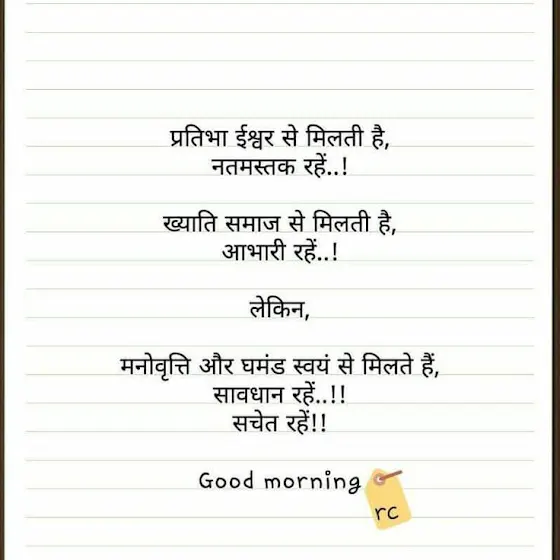 प्रतिभा ईश्वर से मिलती है,
नतमस्तक रहें..!
ख्याति समाज से मिलती है,
आभारी रहें..!
लेकिन,
मनोवृत्ति और घमंड स्वयं से मिलते हैं,
सावधान रहें..!!
सचेत रहें!!
Good morning
rc